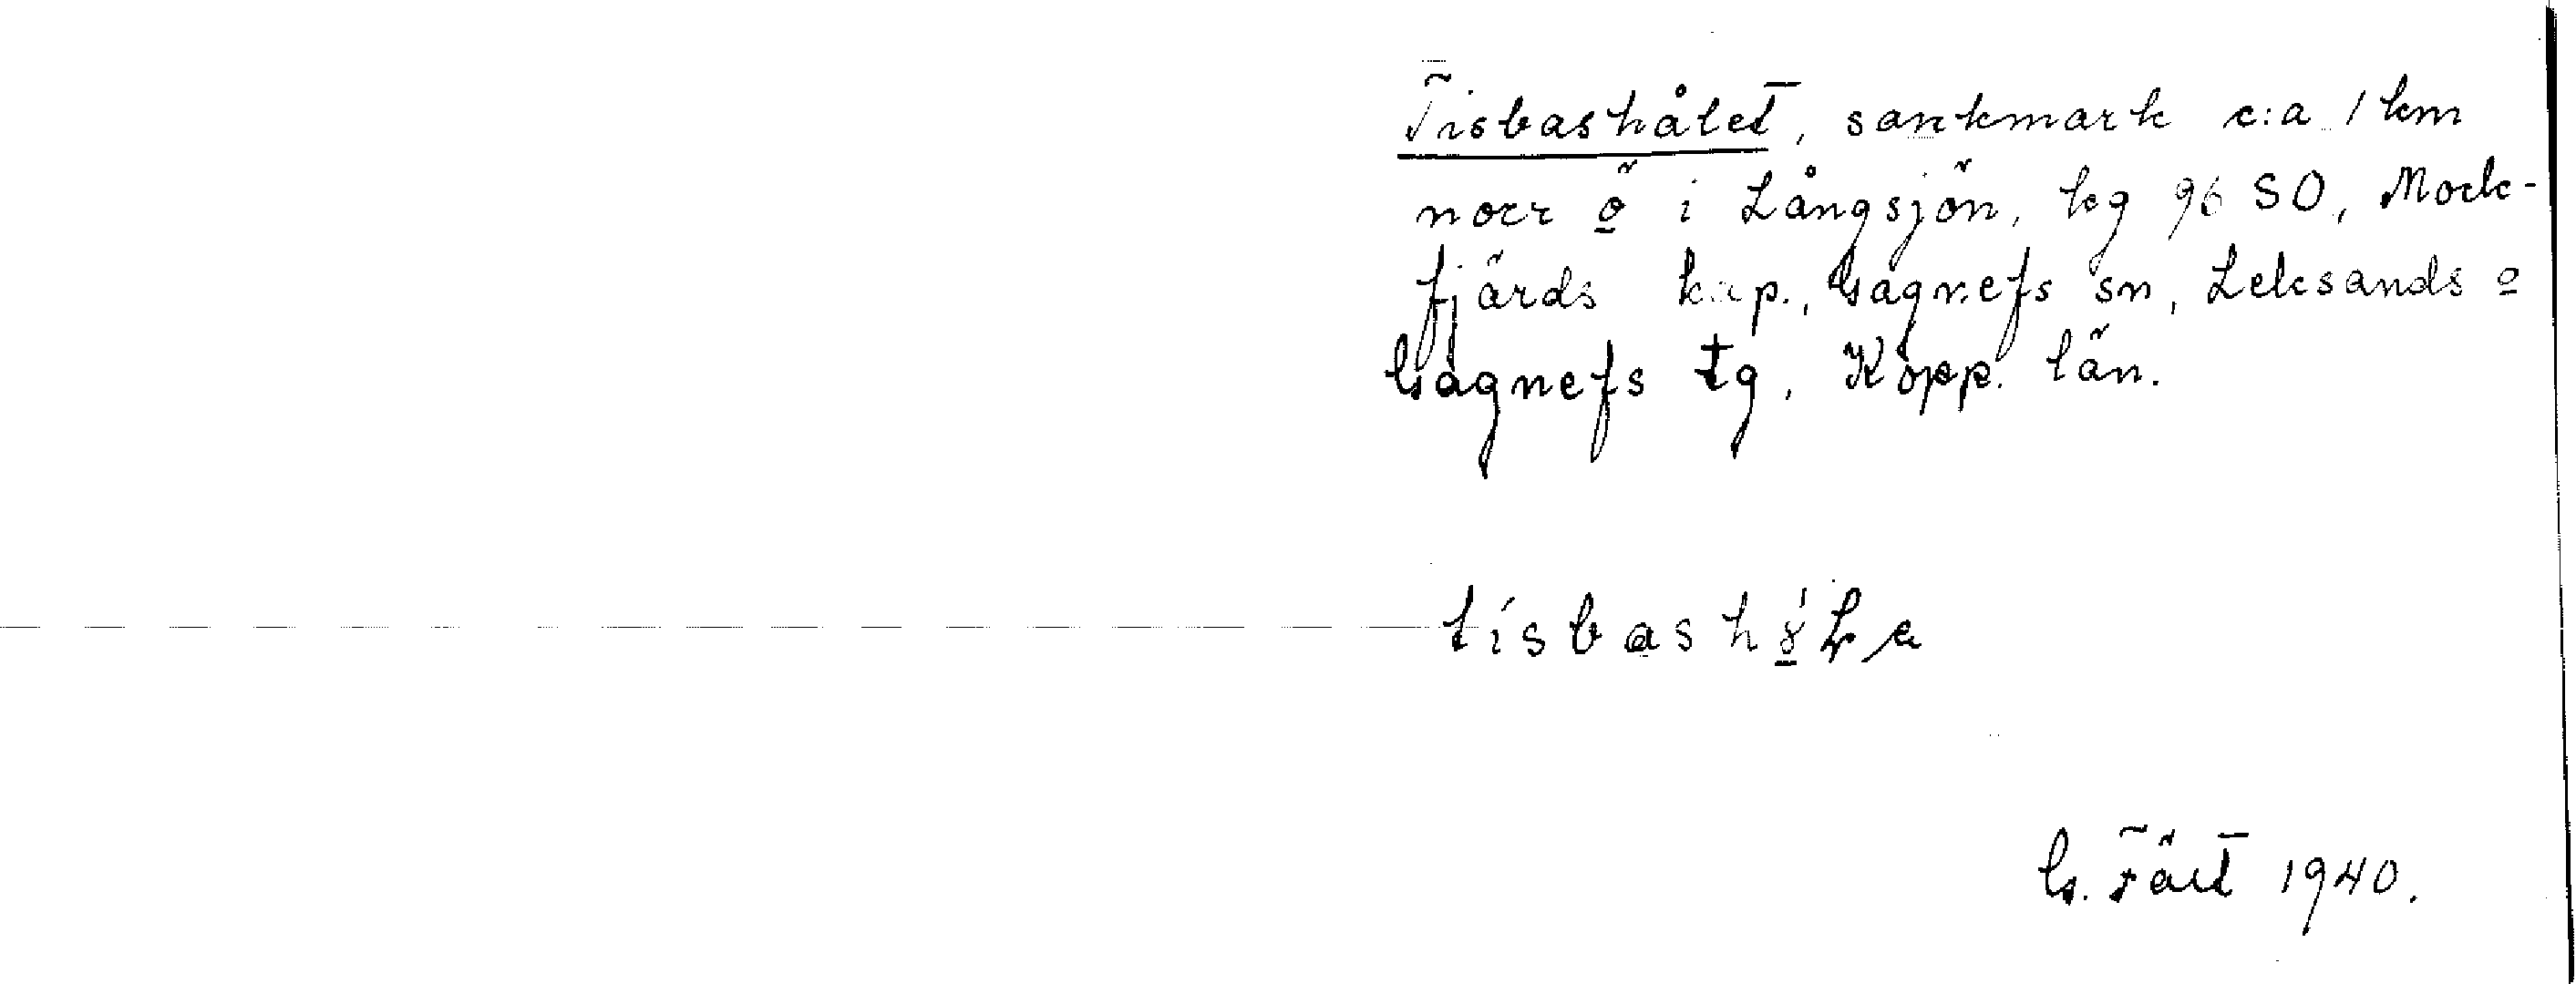 Tisbashålet, sankmark c:a 1 km
norr o i Långsjön, kg 96 SO, Mock-
fjärds kap., Gagnefs sn, Leksands o
Gagnefs tg, Kopp. län.
G. 1940.